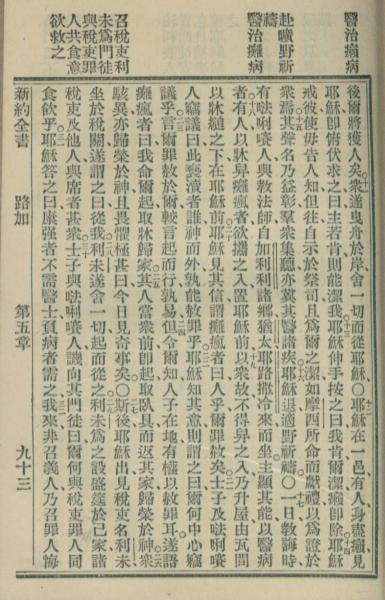 醫治癩病
赴曠野祈
禱
醫治癱病
召稅吏利
未爲門徒
與稅吏罪
人共食意
欲救之
後爾將獲人矣衆遂曳舟於岸舍一切而從耶穌○耶穌在一邑有人身盡癩見
耶穌卽俯伏求之曰主若肯則能潔我耶穌伸手按之曰我肯爾潔癩卽除耶穌
戒彼使毋告人知但往自示於祭司且爲爾之潔如摩西所命而獻禮以爲證於
衆焉其聲名乃益彰羣衆集聽亦冀其醫諸疾耶穌退適野祈禱○一日敎誨時
有𠵽唎㘔人與敎法師自加利利諸鄉猶太耶路撒冷來而坐主顯其能以醫病
者有人以牀舁癱瘋者欲攜之入置耶穌前以衆故不得舁之入乃升屋由瓦間
以牀縋之下在耶穌前耶穌見其信謂癱瘋者曰人乎爾罪赦矣士子及𠵽唎㘔
人竊議曰此褻瀆者誰神而外孰能赦罪乎耶穌知其意則謂之曰爾何中心竊
議乎言爾罪赦於爾較言起而行孰易但令爾知人子在地有權以赦罪耳遂語
癱瘋者曰我命爾起取牀歸家其人當衆前卽起取臥具而返其家歸榮於神衆
駭異亦歸榮於神且畏懼極甚曰今日見奇事矣○斯後耶穌出見稅吏名利未
坐於稅關遂謂之曰從我利未遂舍一切起而從之利未爲之設盛筵於己家諸
稅吏及他人與席者甚衆士子與𠵽唎㘔人譏向其門徒曰爾何與稅吏罪人同
食飲乎耶穌答之曰康强者不需醫士負病者需之我來非召義人乃召罪人悔
新約全書 路加 第五章 九十三